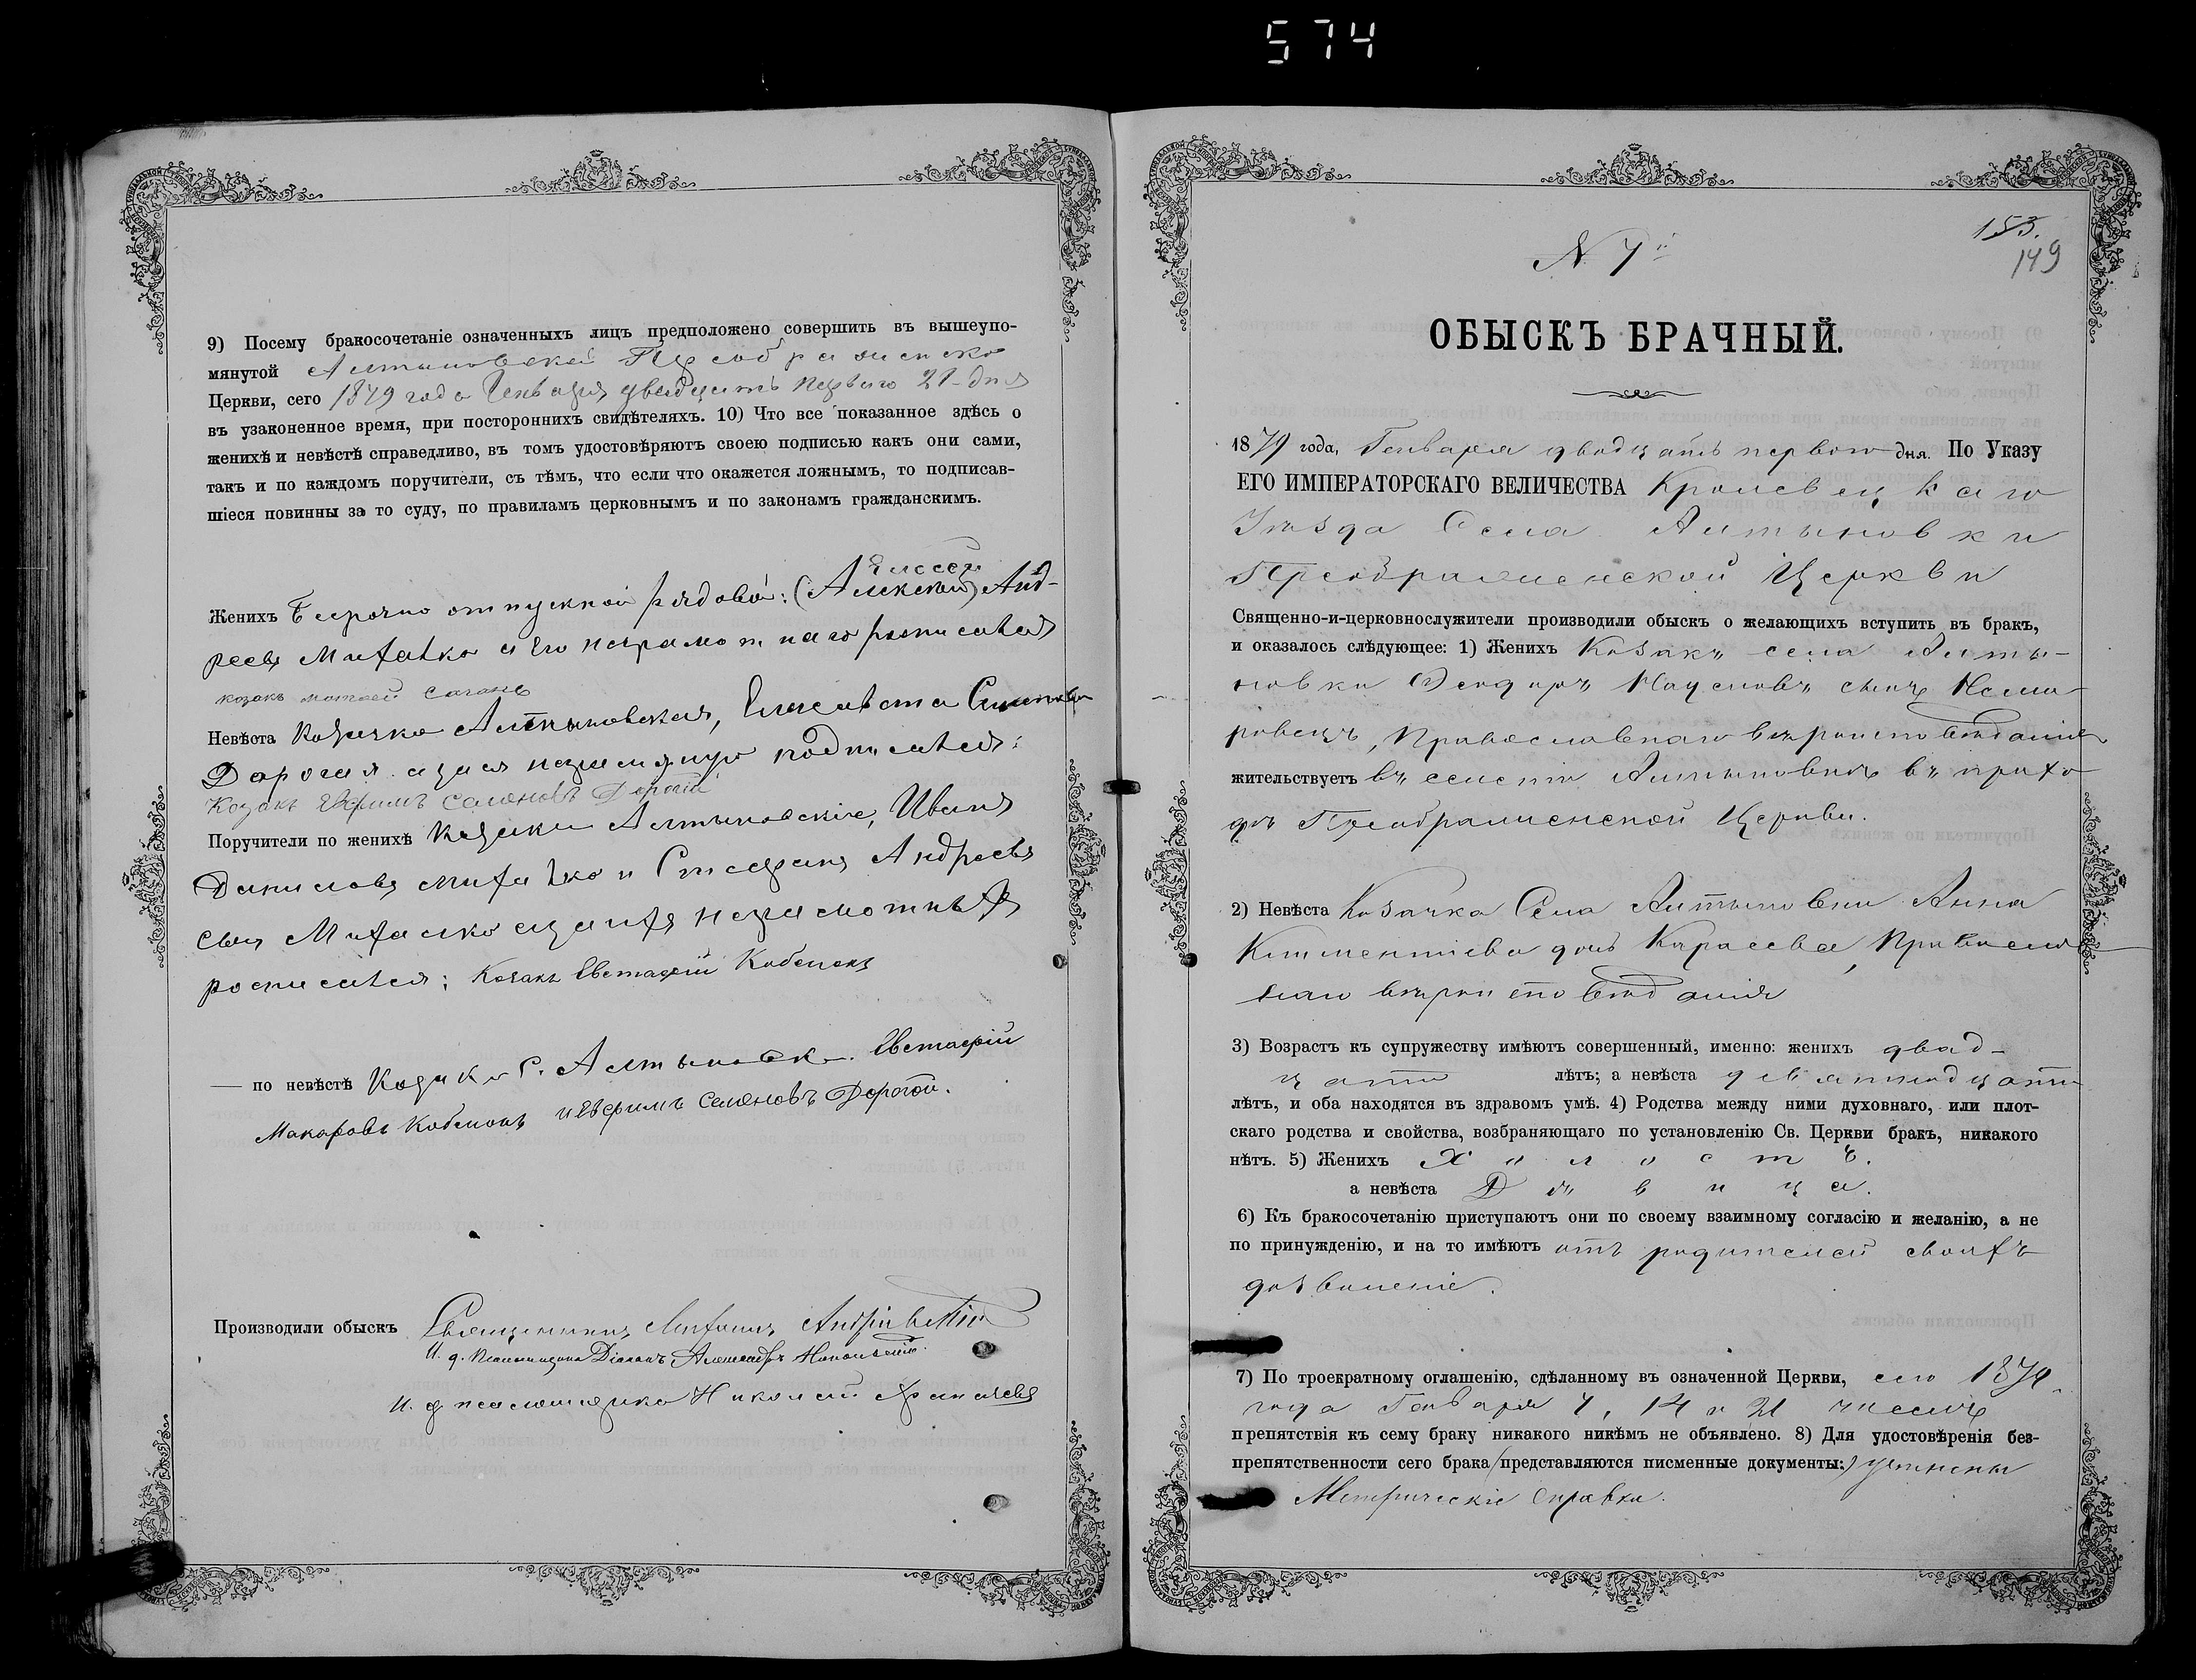 574
9) Посему бракосочетаніе означенныхъ лицъ предположено совершить въ вышеупо-
мянутой Алтыновской Преображенской
Церкви, сего 1879 года Генваря двадцать перваго 21-дня
въ узаконенное время, при постороннихъ свидѣтеляхъ. 10) Что все показанное здѣсь о
женихѣ и невѣстѣ справедливо, въ томъ удостовѣряютъ своею подписью какъ они сами,
такъ и по каждомъ поручители, съ тѣмъ, что если что окажется ложнымъ, то подписав-
шіеся повинны за то суду, по правиламъ церковнымъ и по законамъ гражданскимъ.
Елисей
Женихъ Безсрочно отпускной рядовой: (Алексѣй) Анд-
реевъ Михалко а его неграмотнаго росписался
козакъ матвей
Невѣста Козачка Алтыновская, Елисавета
Дорогая а за ея неграмотную подписался:
Козакъ Евфимъ Семеновъ Дорогій
Поручители по женихѣ Козаки Алтыновскіе, Иванъ
Даниловъ Михалко и Стефанъ Андреевъ
сынъ Михалко а за ихъ неграмотныхъ
росписался: Козакъ Евстафій Кобенокъ
— по невѣстѣ Козаки С. Алтыновки Евстафій
Макаровъ Кобенокъ и Евфимъ Семеновъ Дорогой.
Производили обыскъ Священникъ Андріевскій
И. д. Псаломщика Діаконъ Александръ
И. д. псаломщика Николай
153.
149
N 7й
ОБЫСКЪ БРАЧНЫЙ.
1879 года, Генваря двадцать первого дня. По Указу
ЕГО ИМПЕРАТОРСКАГО ВЕЛИЧЕСТВА Кролевецкаго
Уѣзда Села Алтыновки
Преображенской Церкви
Священно-и-церковнослужители производили обыскъ о желающихъ вступить въ бракъ,
и оказалось слѣдующее: 1) Женихъ Козакъ села Алты-
новки Ѳеодоръ Наумовъ сынъ Нема-
ровецъ, Православнаго вѣроисповѣданія
жительствуетъ въ селеніи Алтыновкѣ въ прихо
дѣ Преображенской Церкви.
2) Невѣста Козачка Села Алтыновки Анна
Климентіева дочь Карасева, Православ
наго вѣроисповѣданія
3) Возрастъ къ супружеству имѣютъ совершенный, именно: женихъ двад-
цати лѣтъ; а невѣста девятнадцати
лѣтъ, и оба находятся въ здравомъ умѣ. 4) Родства между ними духовнаго, или плот-
скаго родства и свойства, возбраняющаго по установленію Св. Церкви бракъ, никакого
нѣтъ. 5) Женихъ Холостъ.
а невѣста Дѣвица.
6) Къ бракосочетанію приступаютъ они по своему взаимному согласію и желанію, а не
по принужденію, и на то имѣютъ отъ родителей своихъ
дозволеніе.
7) По троекратному оглашенію, сдѣланному въ означенной Церкви, сего 1879
года Генваря 7, 14 и 21 чиселъ
препятствія къ сему браку никакого никѣмъ не объявлено. 8) Для удостовѣренія без-
препятственности сего брака (представляются писменные документы:) учинены
Метрическіе справки.